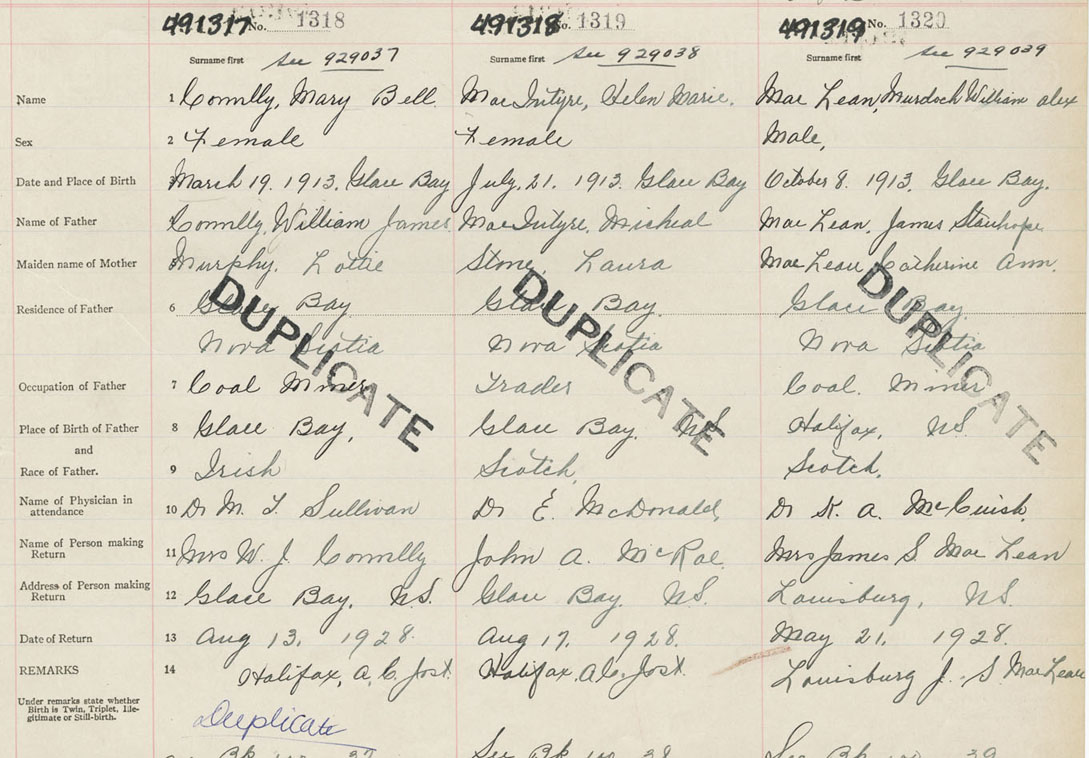 491317 No. 1318 491318 No. 1319 491319 No. 1320
Surname first See 929037 Surname first See 929038 Surname first See 929039
Name 1 Connlly, Mary Bell. MacIntyre, Helen Marie. MacLean, Murdoch William Alex
Sex 2 Female Female Male,
Date and Place of Birth 3 March 19. 1913. Glace Bay July, 21. 1913. Glace Bay October 8. 1913, Glace Bay.
Name of Father 4 Connlly, William James MacIntyre, Micheal MacLean, James Stanhope
Maiden name of Mother 5 Murphy. Lottie Stone, Laura MacLean Catherine Ann.
Residence of Father 6 Glace Bay Glace Bay. Glace Bay.
Nova Scotia Nova Scotia Nova Scotia
DUPLICATE DUPLICATE DUPLICATE
Occupation of Father 7 Coal Miner Trader Coal. Miner
Place of Birth of Father 8 Glace Bay, Glace Bay. NS Halifax, NS.
and
Race of Father. 9 Irish Scotch, Scotch.
Name of Physician in attendance 10 Dr M. T. Sullivan Dr E. McDonald, Dr K. A. McCuish.
Name of Person making Return 11 Mrs W. J. Connlly John A. McRae. Mrs James S. MacLean
Address of Person making Return 12 Glace Bay, N.S. Glace Bay. NS. Louisburg, NS.
Date of Return 13 Aug 13, 1928. Aug 17, 1928. May 21, 1928.
REMARKS 14 Halifax, A. C. Jost. Halifax. A. C. Jost. Louisburg J. S MacLean
Under remarks state whether
Birth is Twin, Triplet, Ille-
gitimate or Still-birth.
Duplicate
Bk no 37 See Bk no 38 See Bk no 39